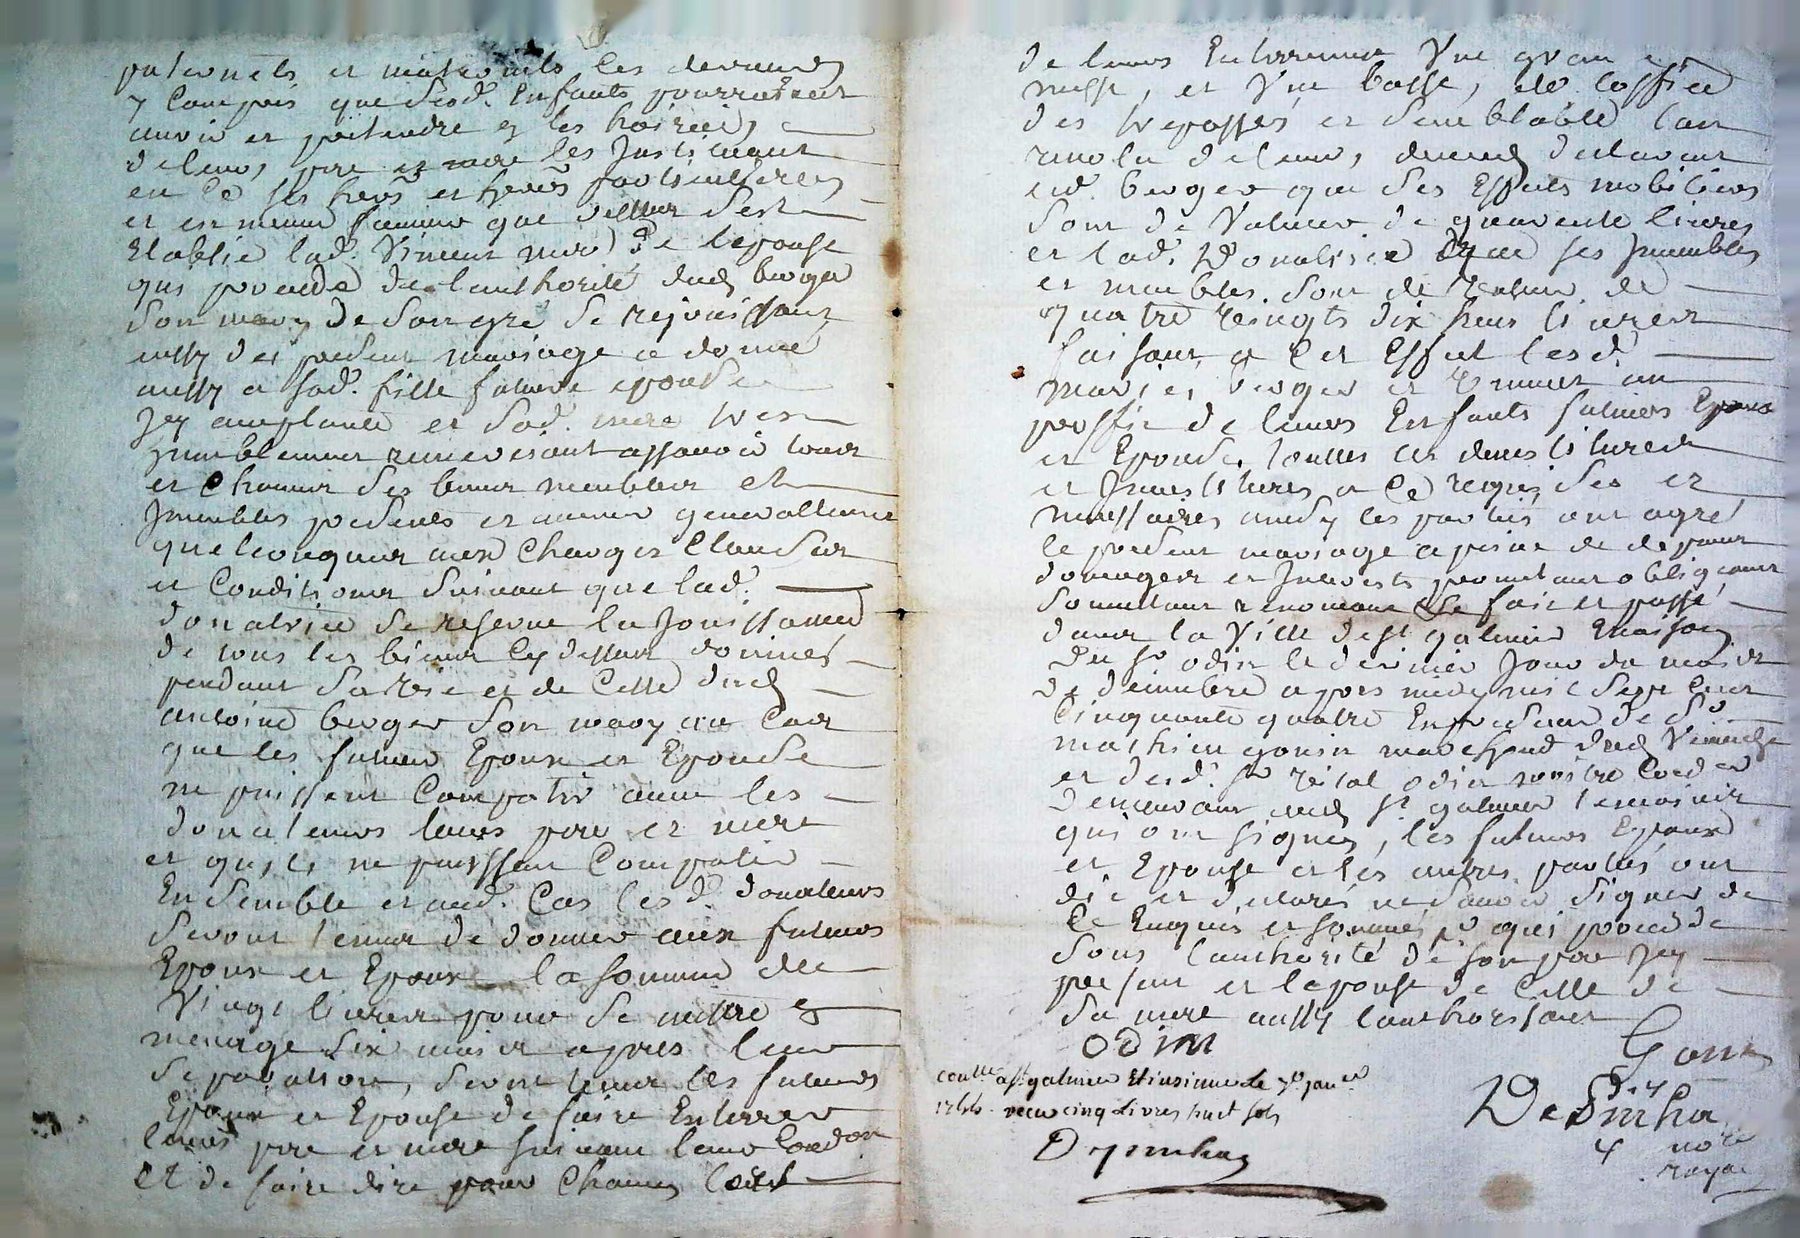 paternels et maternels les devenus
y compris que sesd. Enfants pourroient
avoir et pretendre es les hoiries
de leurs pere et mere les instituant
en ce ses hers et hers particulieres
et en meme faveur que dessus s'est
Etablie lad. Vincent mere de lepouse
qui procede de lauthorité dud berger
son mary de son gré se rejouissant
aussy du present mariage a donné
aussy a sad. fille future epouse
icy acceptante et sad. mere tres
humblement remerciant assavoir tous
et chacuns ses biens meubles et
Immeubles presents et avenir generallement
quelconques aux charges clauses
et conditions suivant que lad.
donatrice se reserve la jouissance
de tous les biens cy dessus donnés
pendant sa vie et de celle dud
antoine berger son mary au cas
que les futurs Epoux et Epouse
ne puissent compatir avec les
donateurs leurs pere et mere
et quils ne puissent compatir
Ensemble et aud. Cas lesd. donateurs
seront tenus de donner aux futurs
Epoux et Epouse la somme de
Vingt livres pour se mettre en
menage six mois apres leur
separation, seront tenus les futurs
Epoux et Epouse de faire Enterrer
leurs pere et mere suivant leur condon
et de faire dire pour chacun leur
de leurs Enterrement Une grande
messe, et Une basse, de loffice
des trepassés et semblable lan
revolu de leurs deceds declarant
led. berger que ses Effets mobiliers
sont de Valeur de quarente livres
et lad. Donatrice que ses Immeubles
et meubles sont de Valeur de
quatre vingts dix huit livres
faisant a cet Effet lesd
mariés berger et Vincent au
proffit de leurs Enfants futurs Epoux
et Epouse toutes les devestitures
et Investitures a ce requises et
necessaires ainsy les parties ont agreé
le present mariage a peine de depens
domages et Interests promettant obligeant
soumettant renonceant &c fait et passé
dans la Ville de St galmier maison
du Sr odin le dernier jour du mois
de decembre apres midy mil sept cent
cinquante quatre En presence de Sr
mathieu gonin marchand dud Veauche
et desd. Sr Vital odin maitre cordier
demeurant aud St galmier temoins
qui ont signés, les futurs Epoux
et Epouse et les autres parties ont
dit et declarés ne scavoir signer de
ce Enquis et sommés led. qui procede
sous lauthorité de son pere icy
present et lepouse de celle de
sa mere aussy lauthorisant
odin
Gonin
conlle a St galmier Etinsinué le 7e janer
recu cinq Livres huit sols
nore
royal